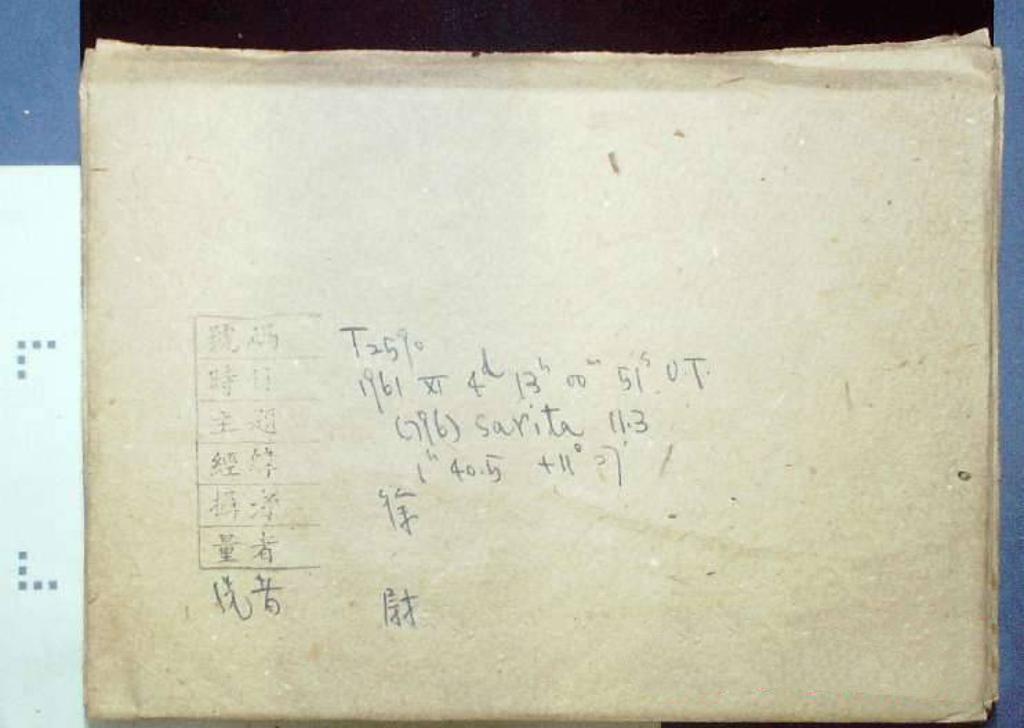 號碼 T2590
時日 1961 XI 4d 13h 00m 51s U.T.
主題 (796) Sarita 11.3
經緯 1h 40.5 +11° 27'
攝者 徐
量者
洗者 尉